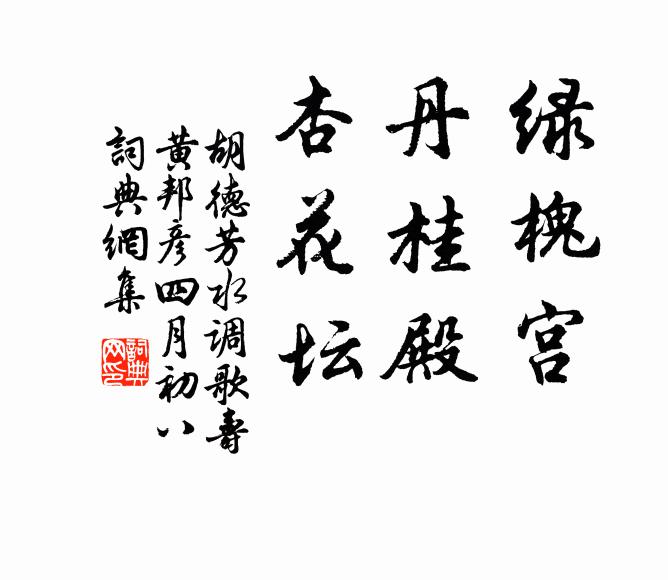 绿槐宫
丹桂殿
杏花坛
胡德芳水调歌寿
黄邦彦四月初八
詞典網集
詞典
网印